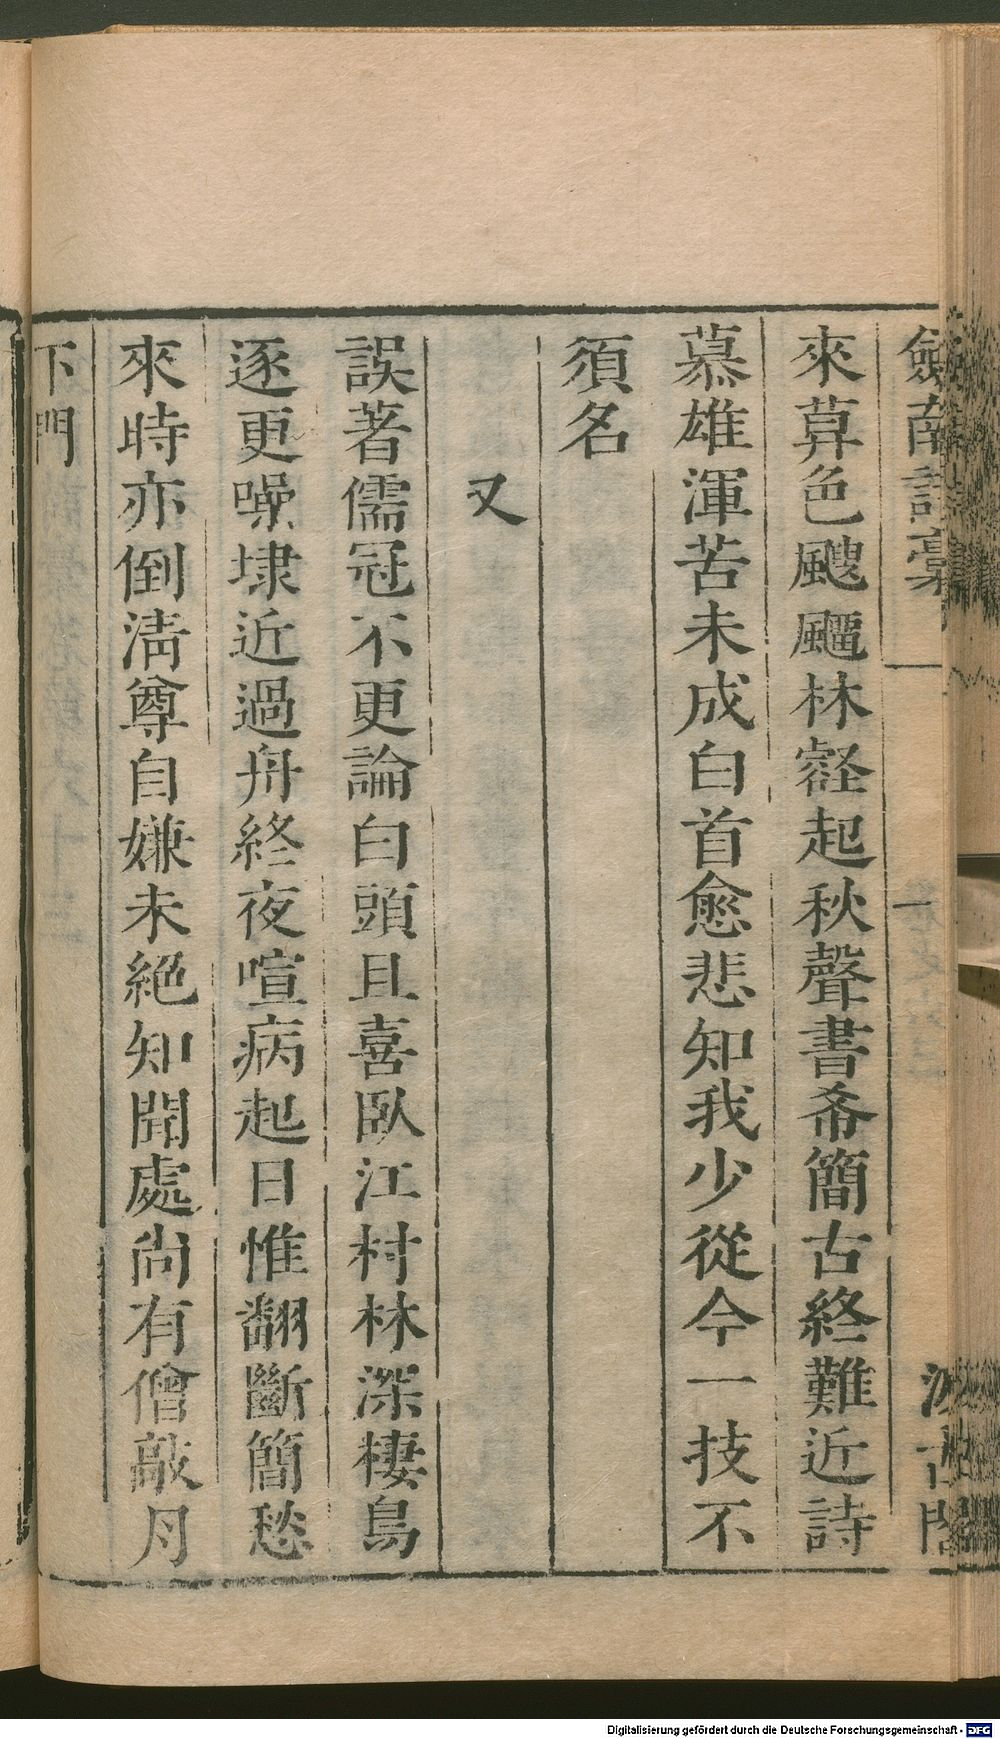 劍南詩稾
一
汲古閣
來草色颼飀林壑起秋聲書希簡古終難近詩
慕雄渾苦未成白首愈悲知我少從今一技不
須名
又
誤著儒冠不更論白頭且喜臥江村林深棲鳥
逐更噪埭近過舟終夜喧病起日惟翻斷簡愁
來時亦倒清尊自嫌未絕知聞處尚有僧敲月
下門
Digitalisierung gefördert durch die Deutsche Forschungsgemeinschaft - DFG